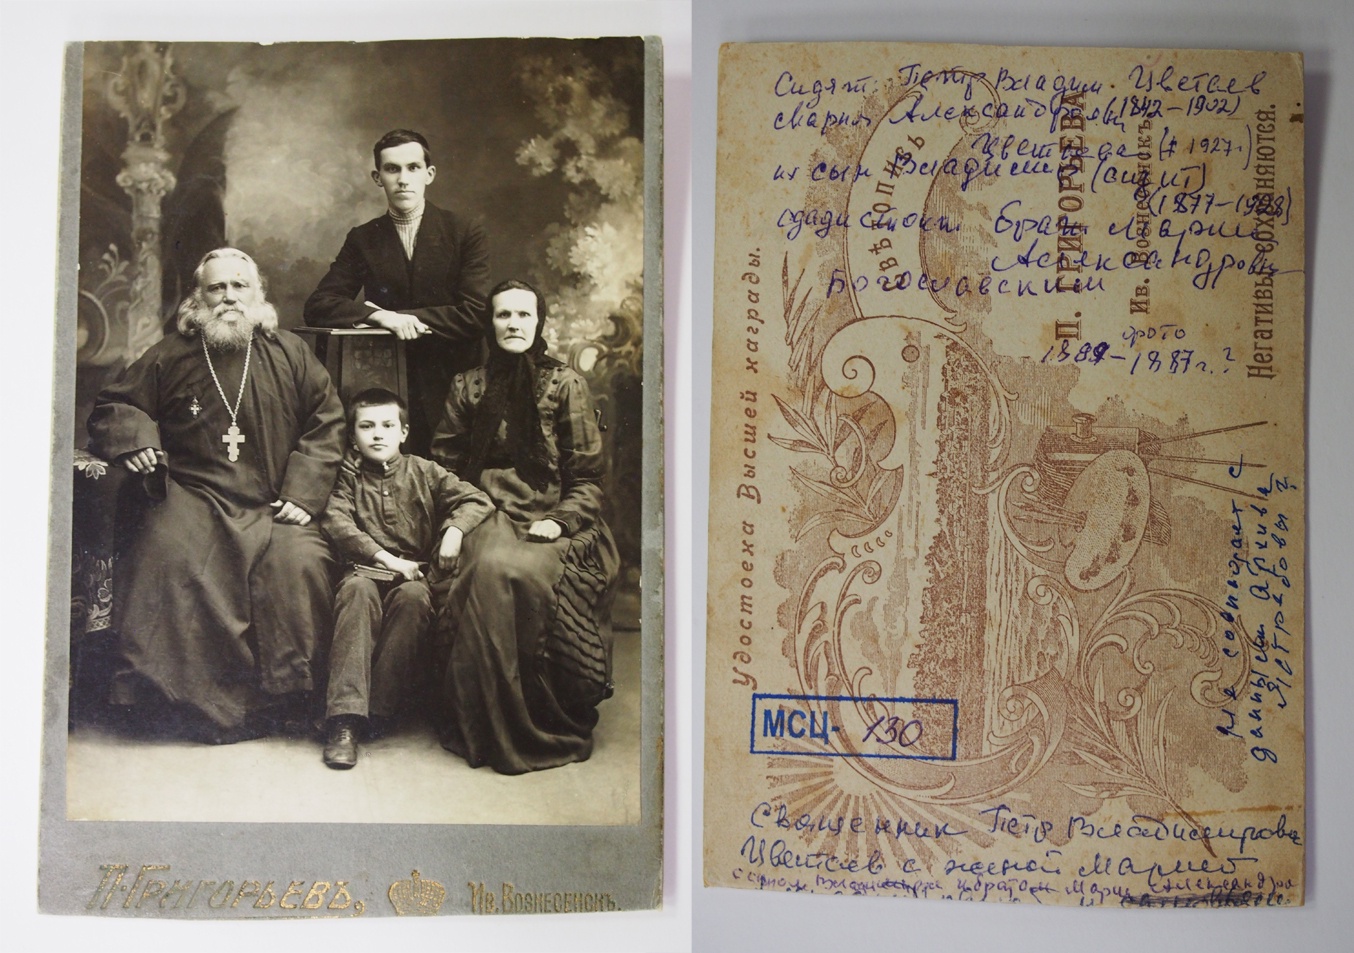 П. ГРИГОРЬЕВЪ,
Ив. ВОЗНЕСЕНСКЪ.
Сидят: Петр Владим. Цветаев
(1842-1902)
и Мария Александровна
Цветаева († 1927г.)
их сын Владимир (сидит)
(1877-1908)
сзади стоит брат Марии
Александровны
Богославский
фото
-1887г.?
СВѢТОПИСЬ
П. ГРИГОРЬЕВА
Ив. Вознесенскъ
Негативы сохраняются.
Удостоена Высшей награды.
Не совпадает с
данными Архива
Ястребовы?
МСЦ-130
Священник Петр Владимирович
Цветаев с женой Марией
сыном Владимиром и братом Марии Александро